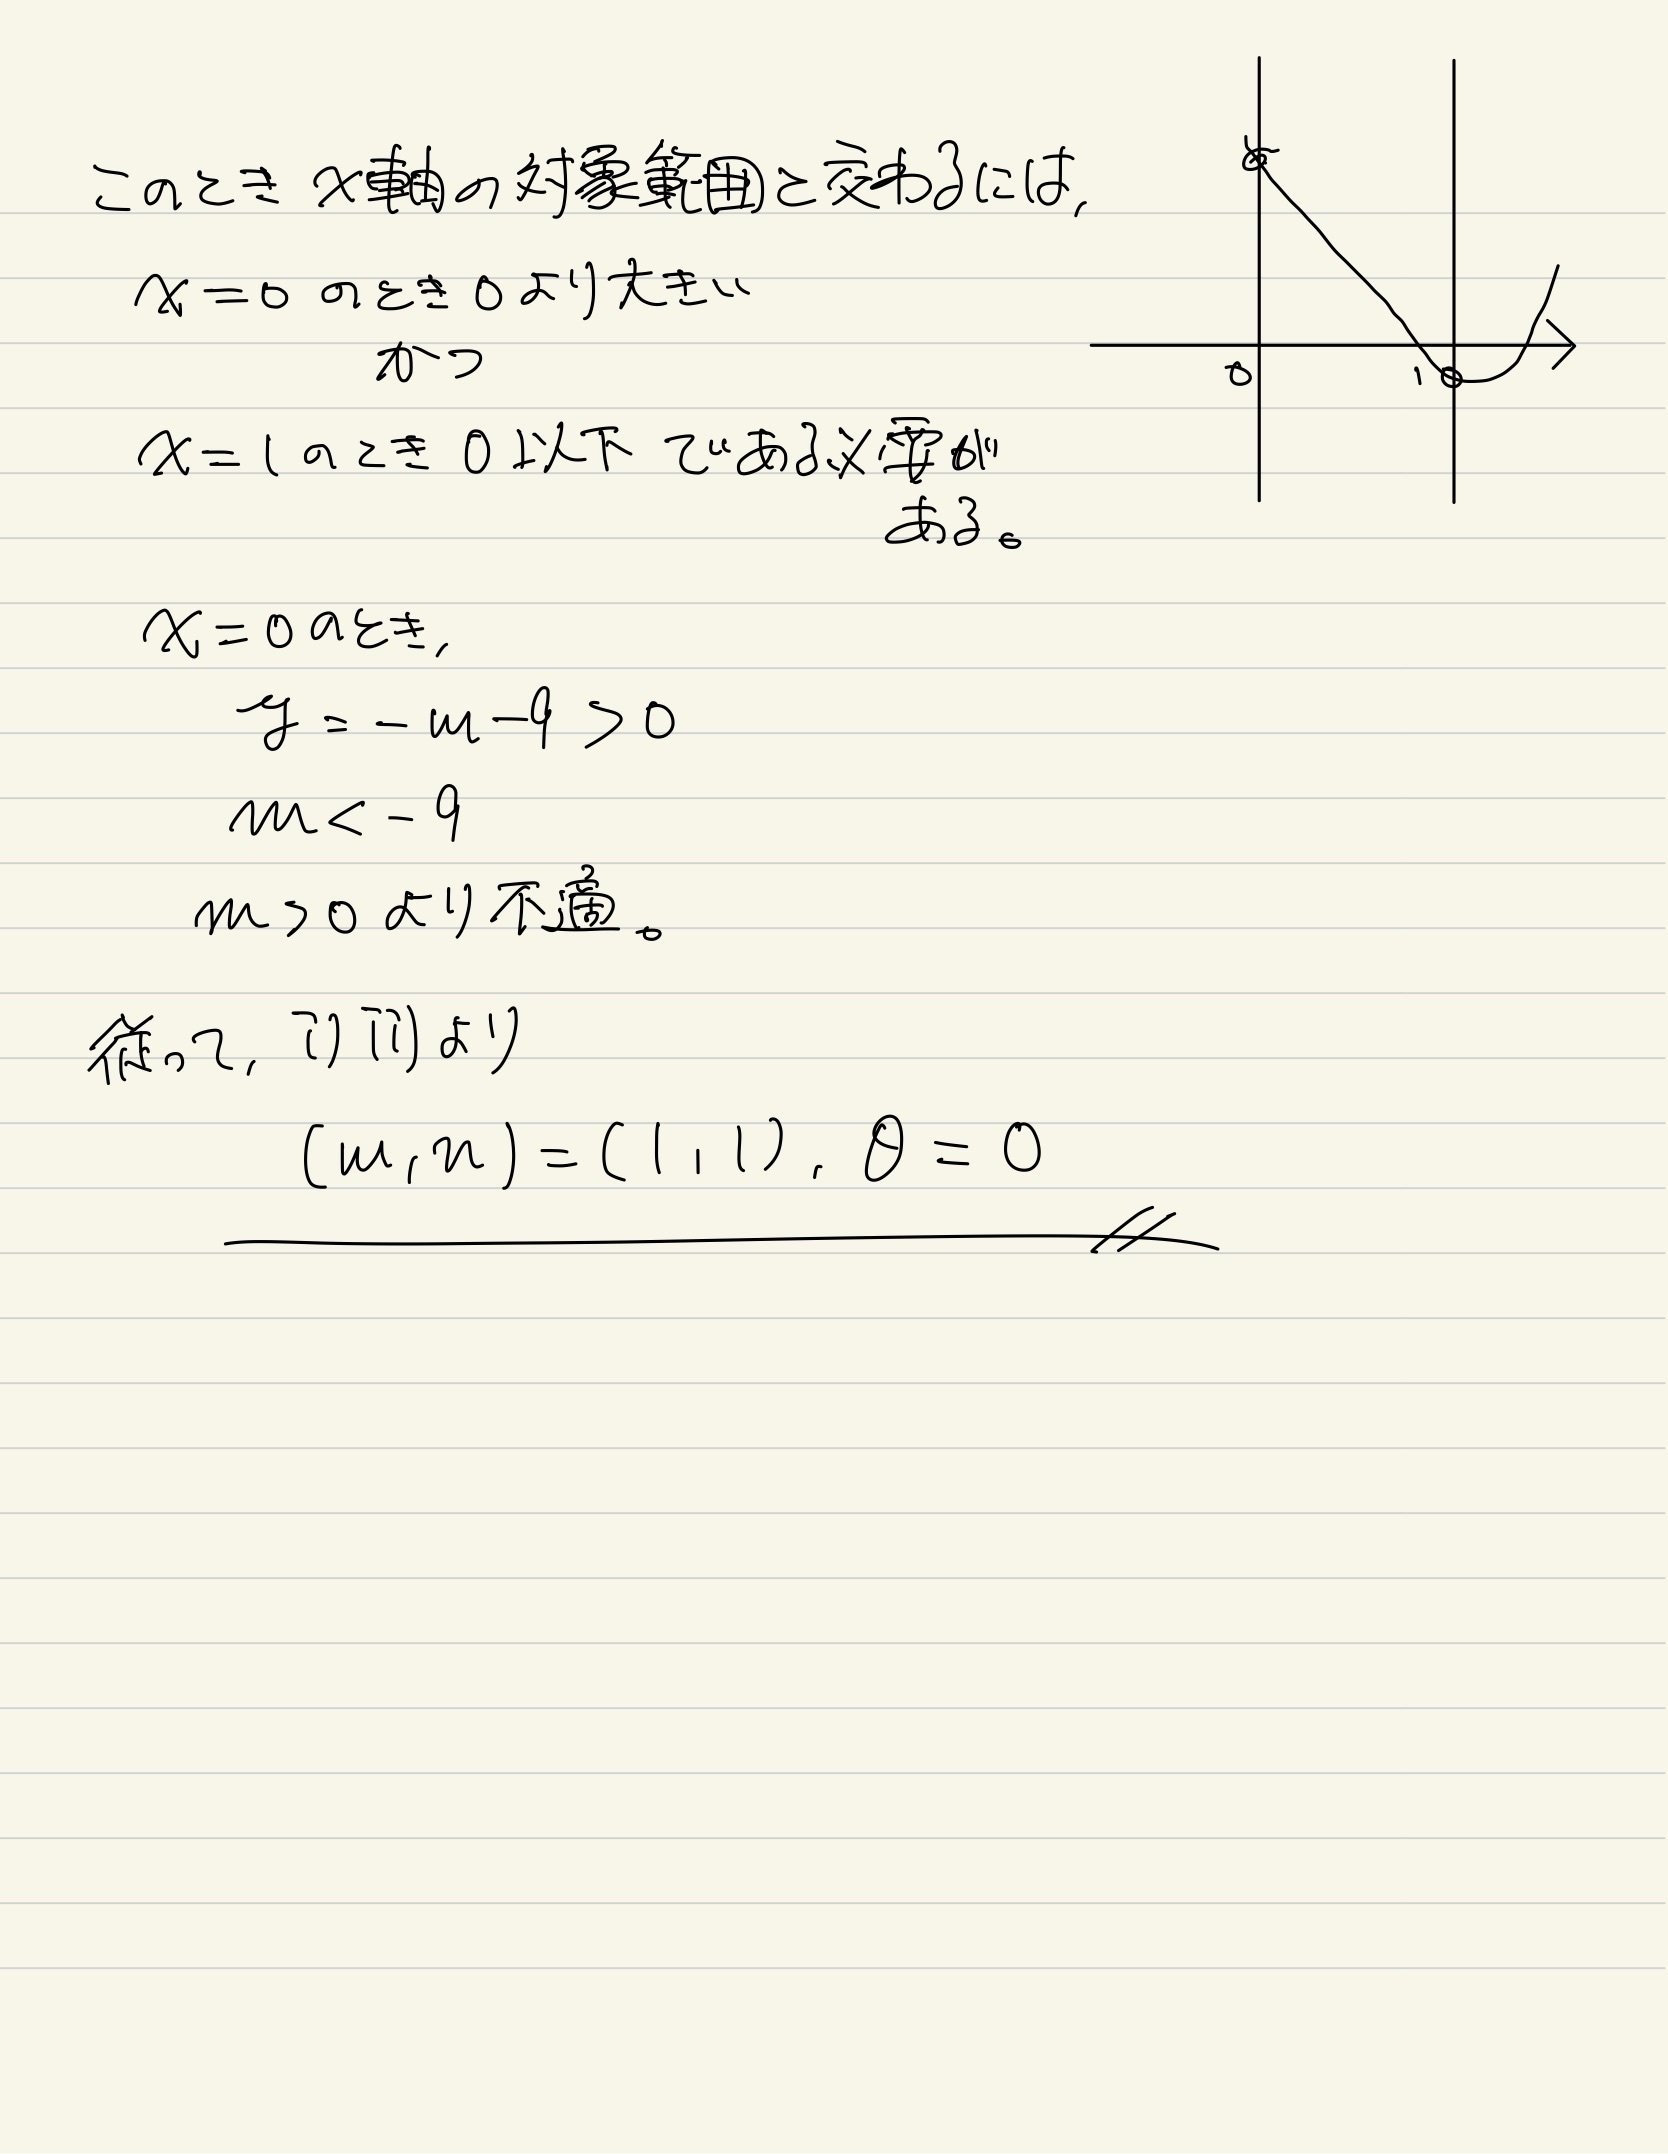 このとき x軸の対象範囲と交わるには,
x=0 のとき 0より大きい
かつ
x=1 のとき 0以下 である必要が
ある。
0 1
x=0のとき,
y=-m-9>0
m<-9
m>0より不適。
従って, i) ii)より
(m,n)=(1,1), θ=0